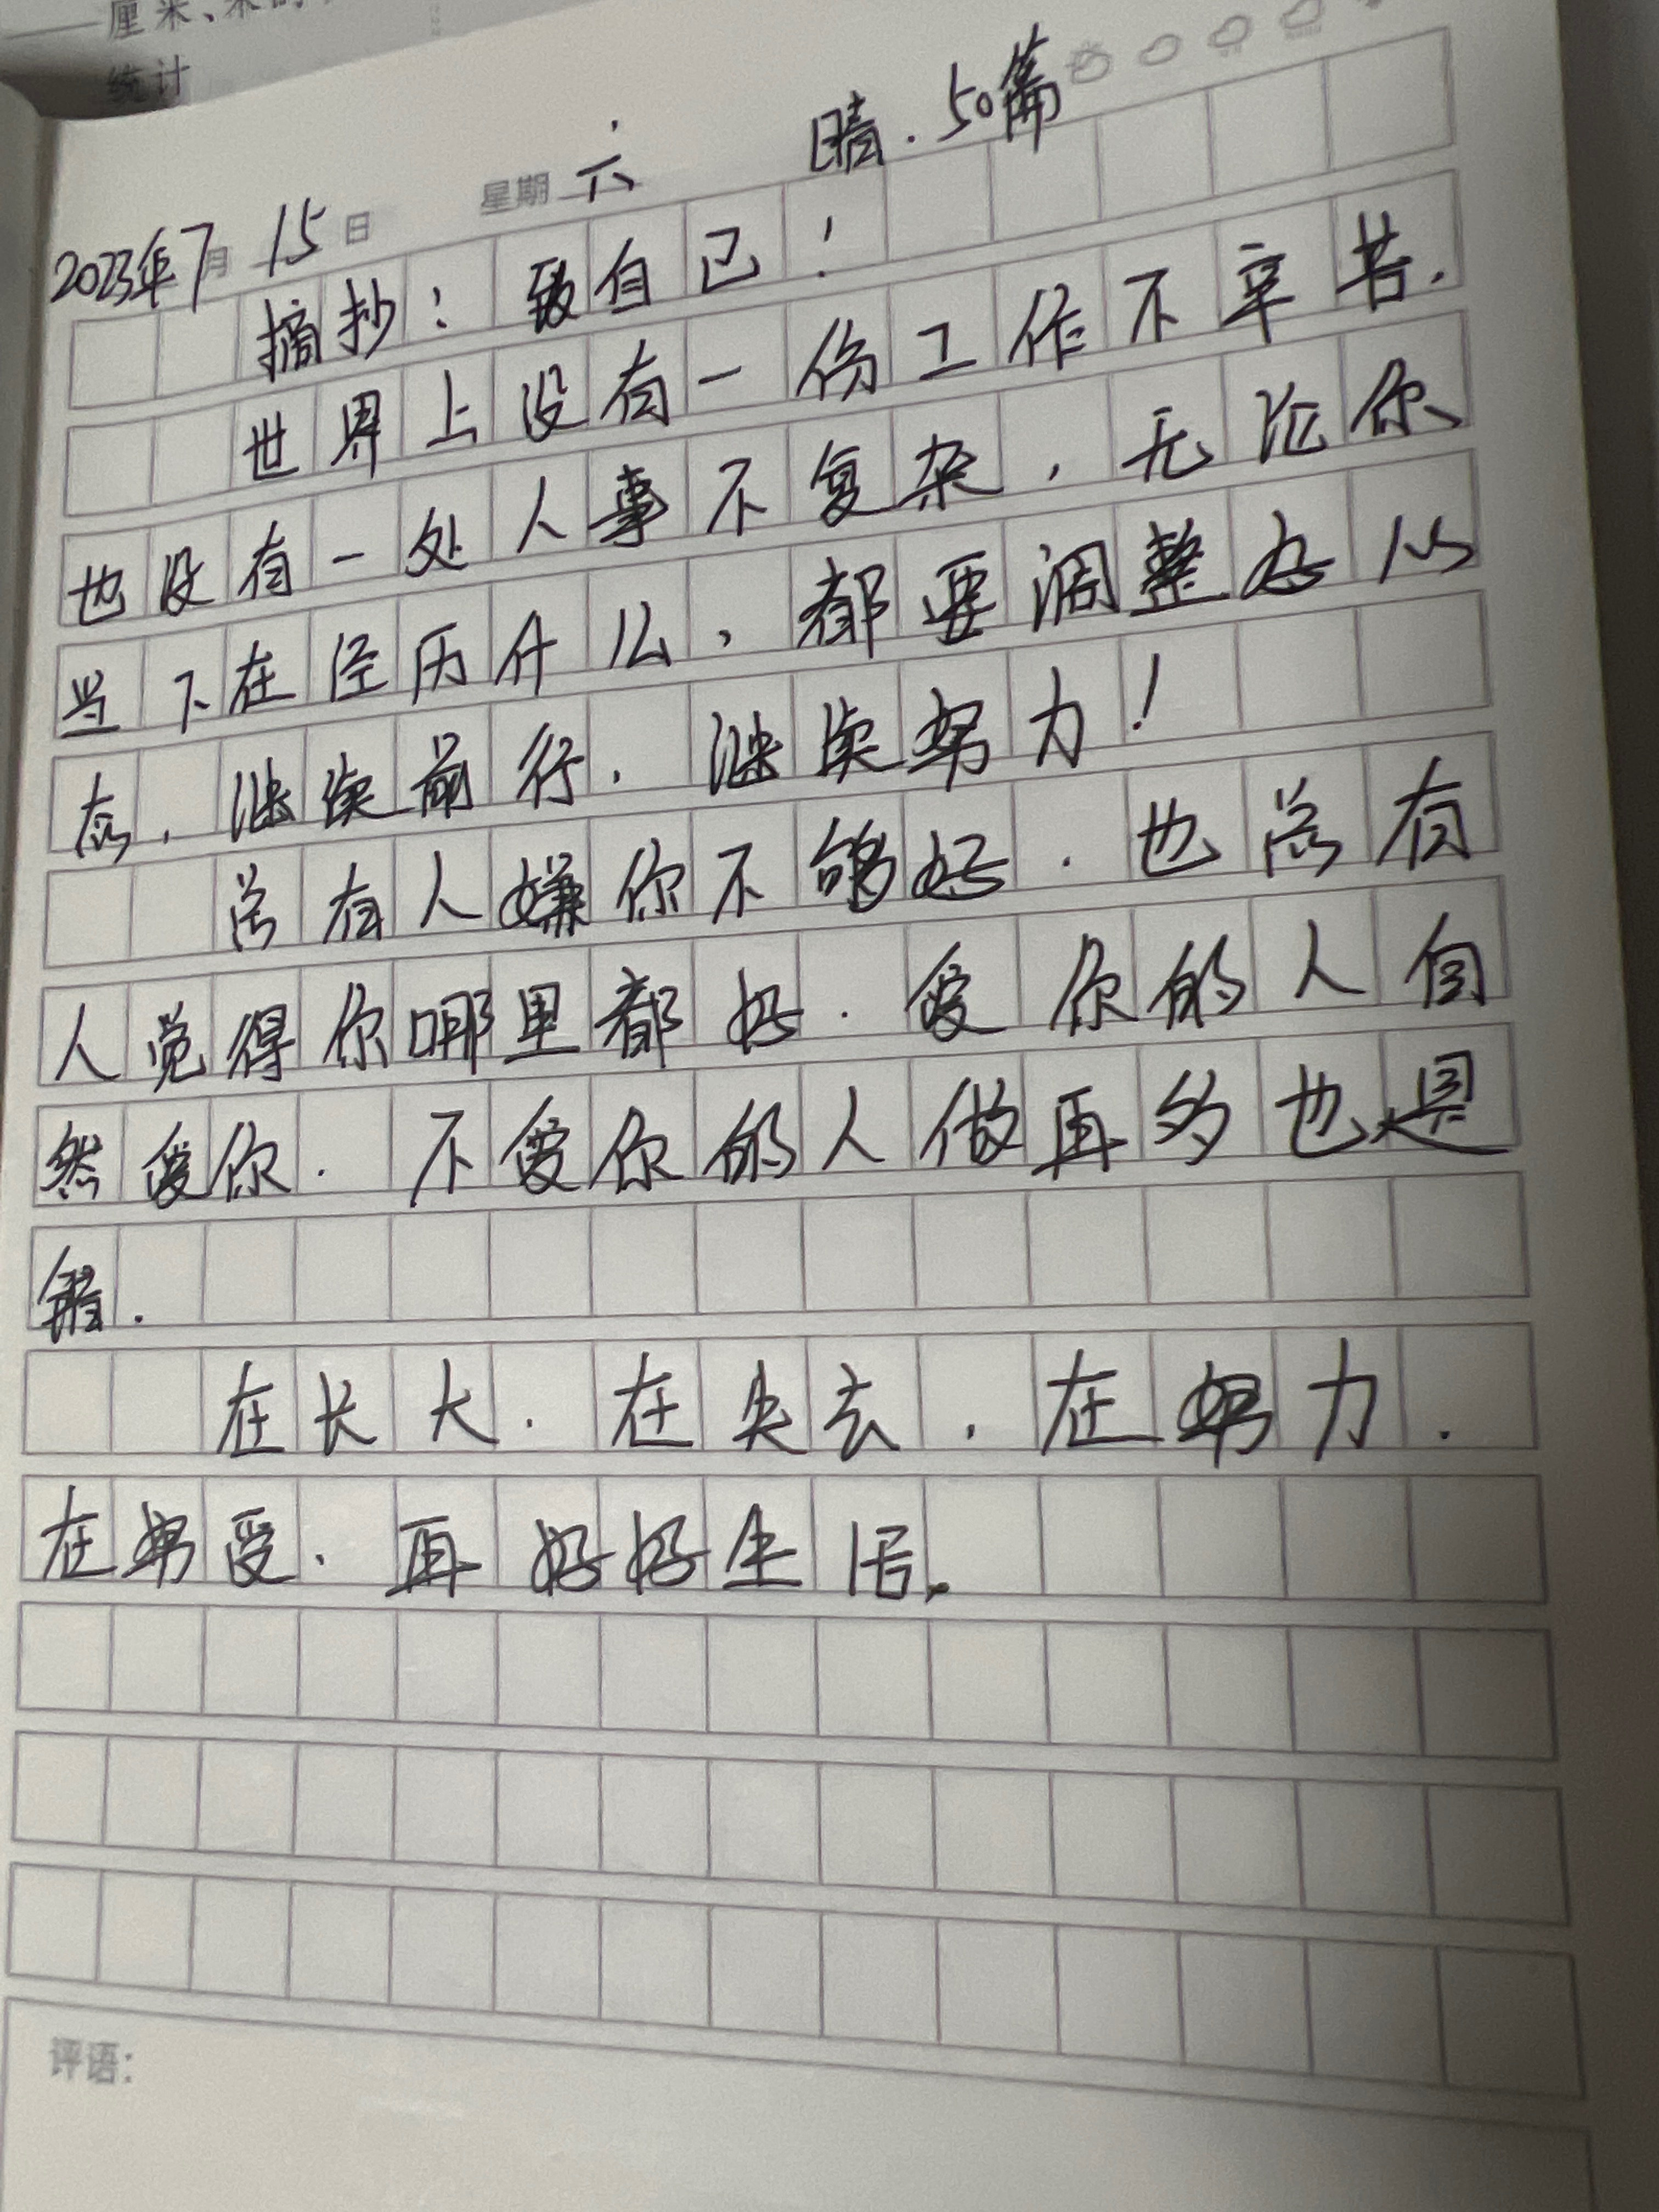 厘米、米的
统计
2023年7月15日 星期六 晴.50篇
摘抄：致自己！
世界上没有一份工作不辛苦.
也没有一处人事不复杂，无论你
当下在经历什么，都要调整好心
态，继续前行.继续努力！
总有人嫌你不够好.也总有
人觉得你哪里都好.爱你的人自
然爱你.不爱你的人做再多也是
错.
在长大.在失去，在努力.
在努受、再好好生活。
评语：